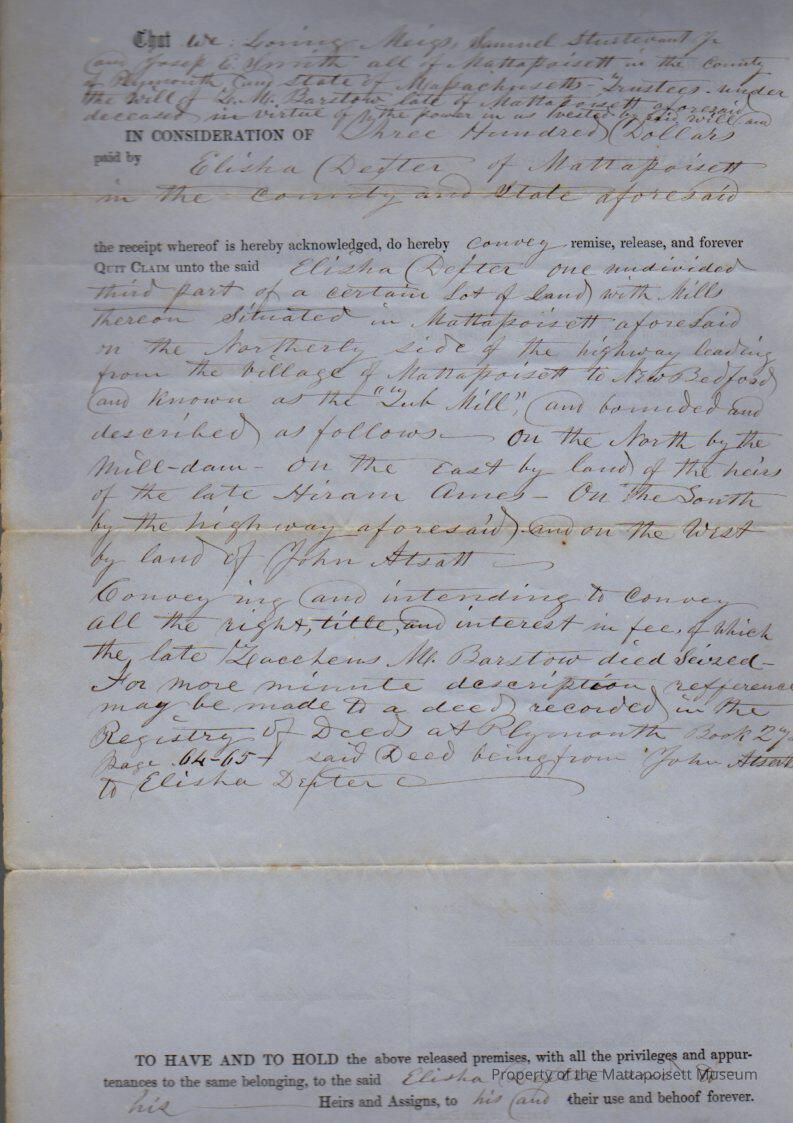 That We, Loring Meigs, Samuel Sturtevant Jr
and Josep E Smith all of Mattapoisett in the County
of Plymouth and State of Massachusetts - Trustees under
the Will of Z. M. Barstow late of Mattapoisett aforesaid
deceased in virtue of the power in us vested by said will and
IN CONSIDERATION OF Three Hundred Dollars
paid by Elisha Dexter of Mattapoisett
in the County and State aforesaid
the receipt whereof is hereby acknowledged, do hereby convey remise, release, and forever
QUIT CLAIM unto the said Elisha Dexter one undivided
third part of a certain Lot of land with Mills
thereon Situated in Mattapoisett aforesaid
on the Northerly side of the highway leading
from the Village of Mattapoisett to New Bedford
and Known as the "Tub Mill", and bounded and
described as follows - On the North by the
Mill-dam - on the East by land of the heirs
of the late Hiram Ames - On the South
by the highway aforesaid and on the West
by land of John Atsatt
Conveying and intending to convey
all the right, title, and interest in fee, of which
the late Zaccheus M. Barstow died Seized -
For more minute description refference
may be made to a deed recorded in the
Registry of Deeds at Plymouth Book 27
page 64-65 said Deed being from John Atsatt
to Elisha Dexter
TO HAVE AND TO HOLD the above released premises, with all the privileges and appur-
tenances to the same belonging, to the said Elisha
Property of the Mattapoisett Museum
his Heirs and Assigns, to his and their use and behoof forever.